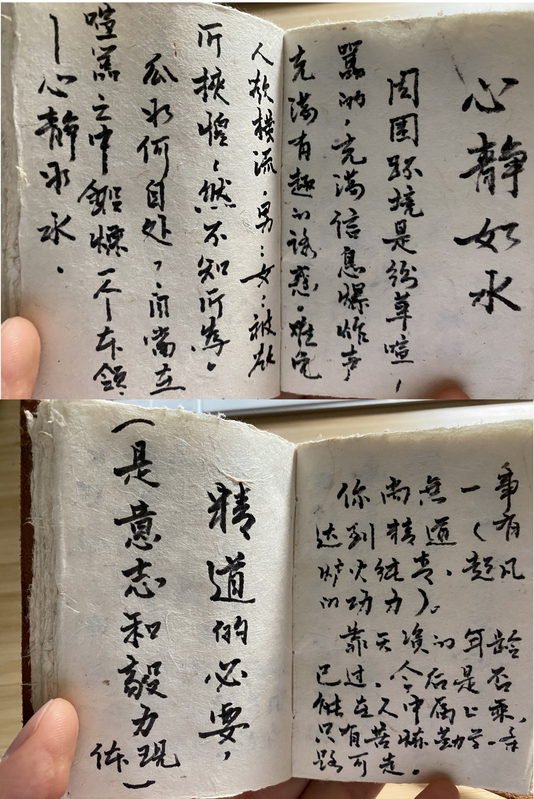 心静如水
周围环境是纷华喧,
嚣的,充满信息爆炸声,
充满有趣的诱惑。难免
人欲横流,男:女:被欲
所,然不知所为。
如何自处,自当立
喧嚣之中锻炼一个本领
—心静如水。
精道的必要,
(是意志和毅力体现)
你尚无一事
达到精道(有
炉火纯青、超凡
的功力)。
靠天资的年龄
已过,今后是否
能在人中属上乘,
只有苦练勤学一条
路可走。